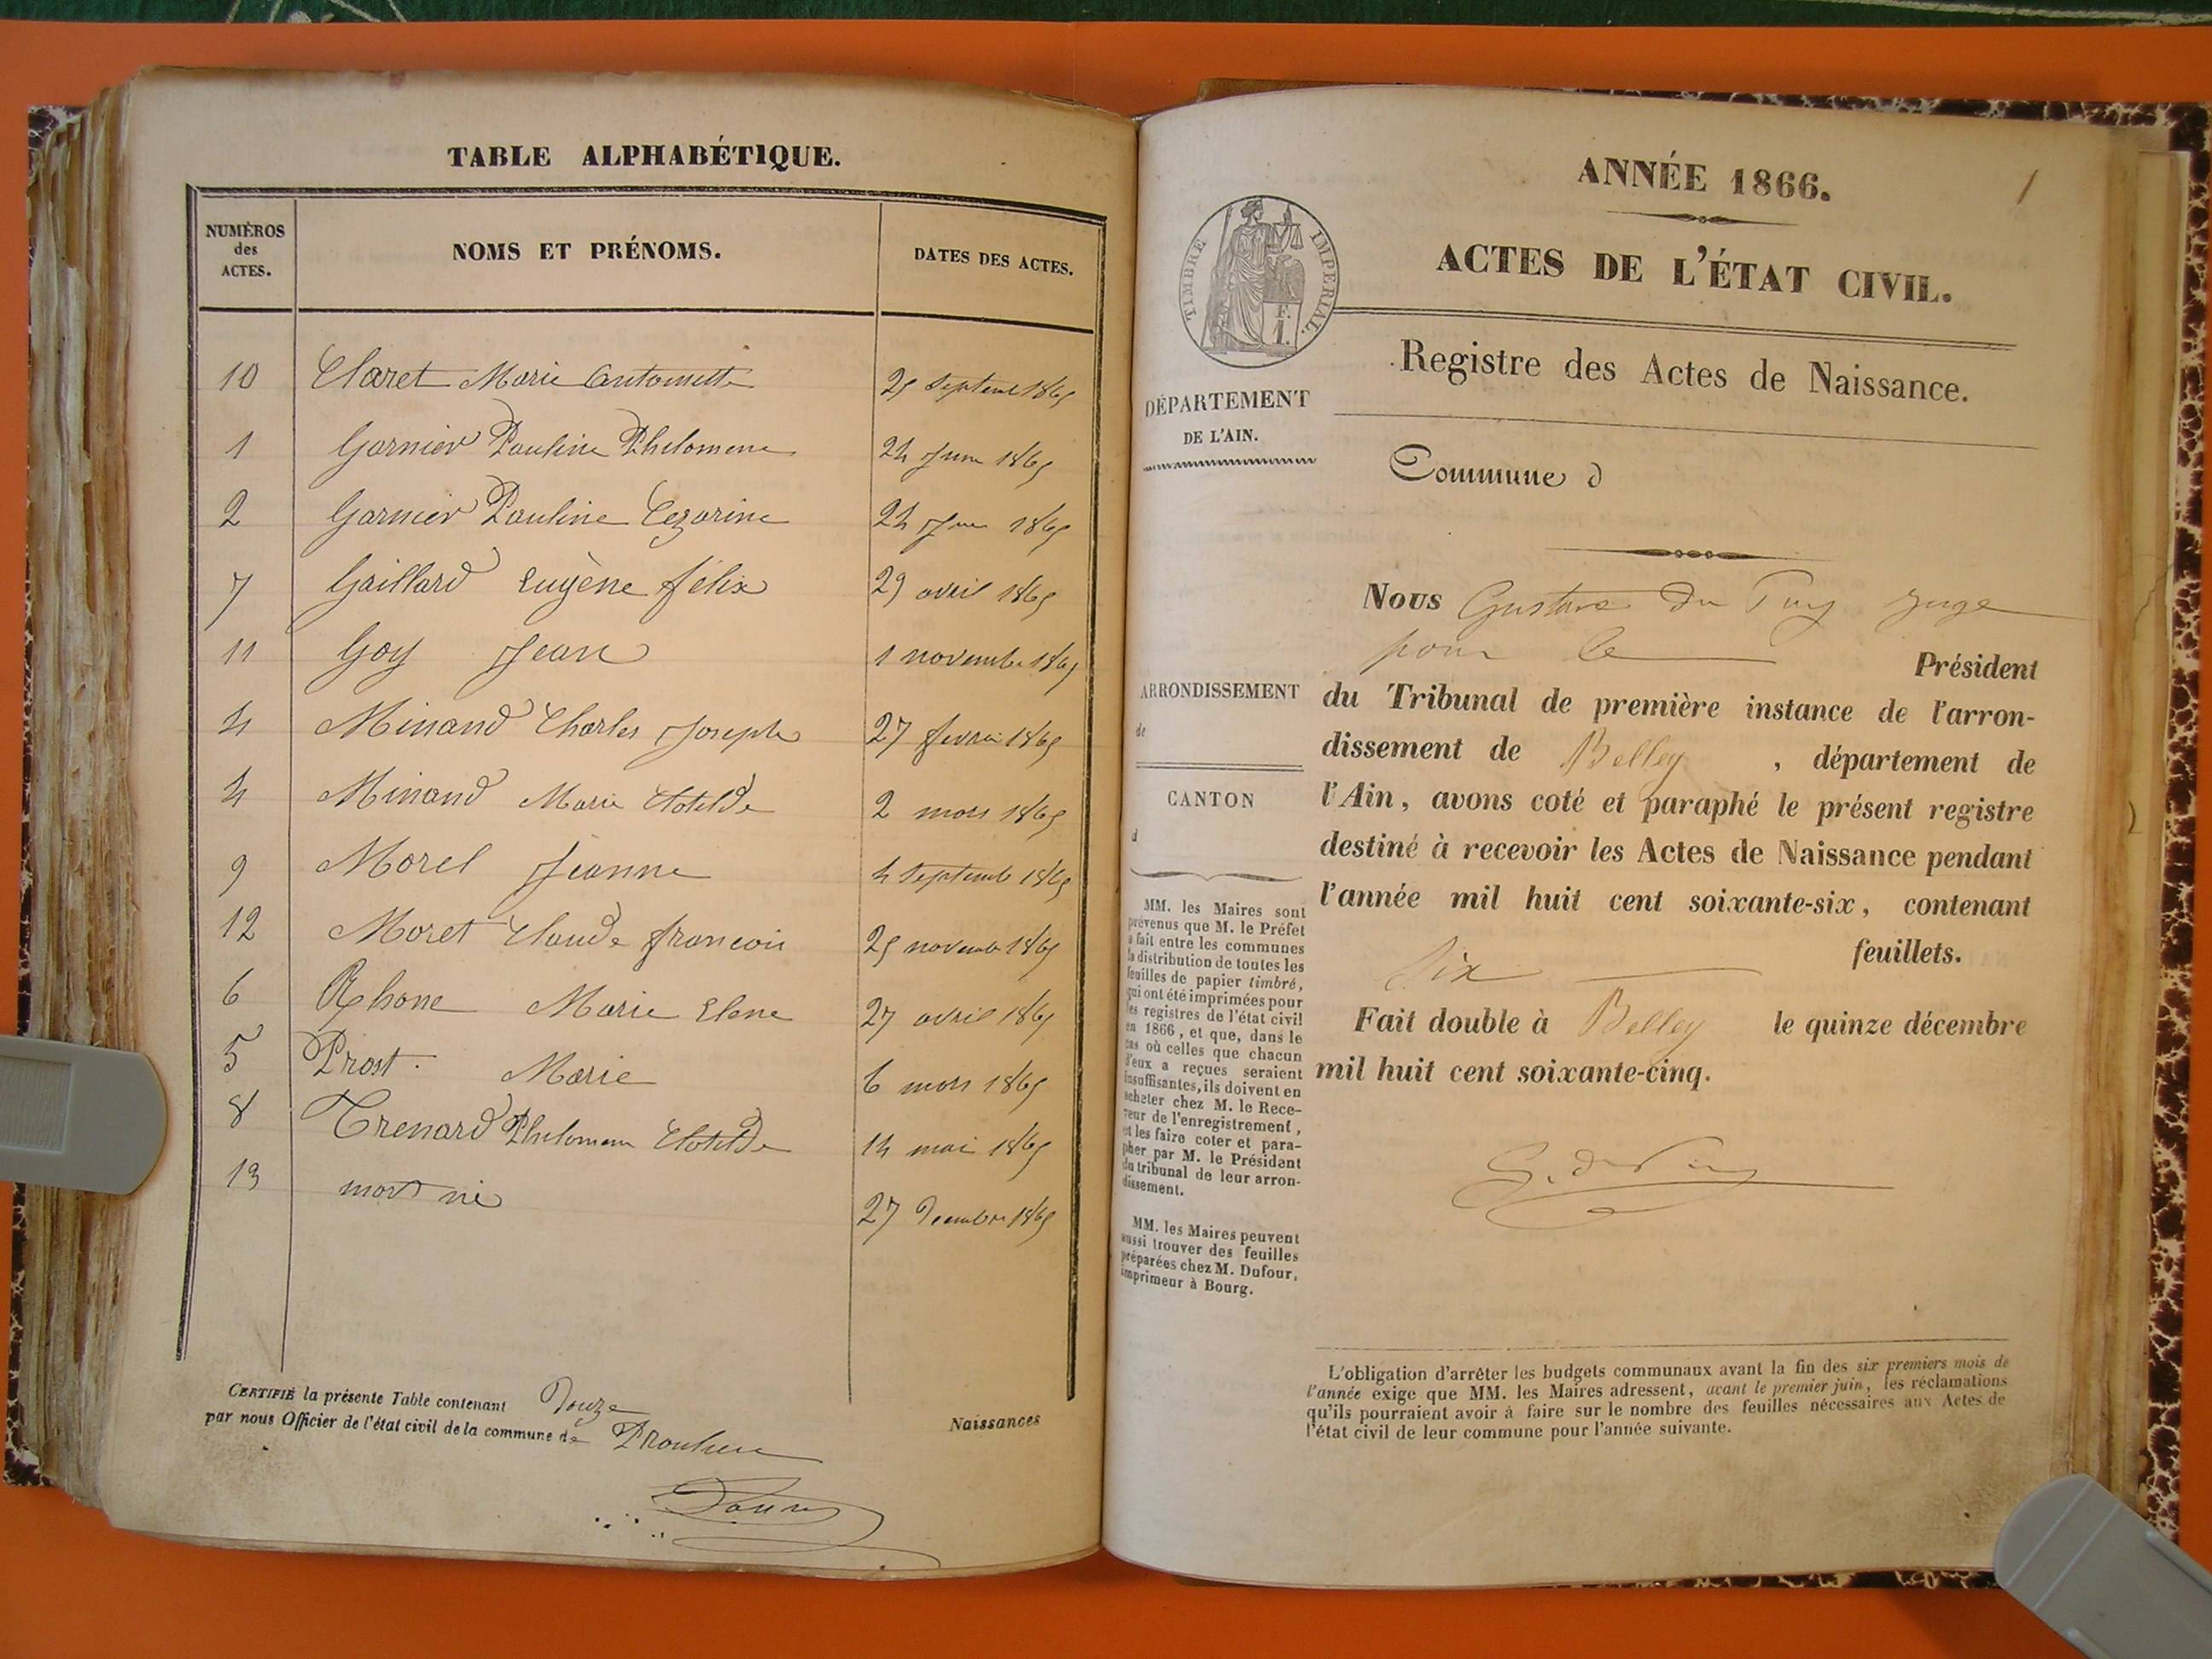 TABLE ALPHABÉTIQUE.
NUMÉROS
des
ACTES.
NOMS ET PRÉNOMS.
DATES DES ACTES.
10 Claret Marie Antoinette 25 septemb 1865
1 Garnier Pauline Philomene 24 Janv 1865
2 Garnier Pauline Cezarine 24 Janv 1865
7 Gaillard Eugène félix 29 avril 1865
11 Goy Jean 1 novembre 1865
4 Minand Charles Joseph 27 fevrier 1865
4 Minand Marie Clotilde 2 mars 1865
9 Morel Jeanne 4 septemb 1865
12 Moret Claude francois 25 novemb 1865
6 Rhone Marie Elene 27 avril 1865
5 Prost Marie 6 mars 1865
8 Trenard Philomene Clotilde 14 mai 1865
13 mort né 27 Decembre 1865
CERTIFIÉ la présente Table contenant Douze Naissances
par nous Officier de l'état civil de la commune de Proulieu
1
ANNÉE 1866.
TIMBRE IMPÉRIAL.
F.
1.
ACTES DE L'ÉTAT CIVIL.
Registre des Actes de Naissance.
DÉPARTEMENT
DE L'AIN.
Commune d
Nous Gustave Du Puy juge
pour le Président
ARRONDISSEMENT
de
du Tribunal de première instance de l'arron-
dissement de Belley , département de
CANTON
d
l'Ain, avons coté et paraphé le présent registre
destiné à recevoir les Actes de Naissance pendant
l'année mil huit cent soixante-six, contenant
six feuillets.
Fait double à Belley le quinze décembre
mil huit cent soixante-cinq.
G. du Puy
MM. les Maires sont
prévenus que M. le Préfet
a fait entre les communes
la distribution de toutes les
feuilles de papier timbré,
qui ont été imprimées pour
les registres de l'état civil
en 1866, et que, dans le
cas où celles que chacun
d'eux a reçues seraient
insuffisantes, ils doivent en
acheter chez M. le Rece-
veur de l'enregistrement,
et les faire coter et para-
pher par M. le Président
du tribunal de leur arron-
dissement.
MM. les Maires peuvent
aussi trouver des feuilles
préparées chez M. Dufour,
imprimeur à Bourg.
L'obligation d'arrêter les budgets communaux avant la fin des six premiers mois de
l'année exige que MM. les Maires adressent, avant le premier juin, les réclamations
qu'ils pourraient avoir à faire sur le nombre des feuilles nécessaires aux Actes de
l'état civil de leur commune pour l'année suivante.